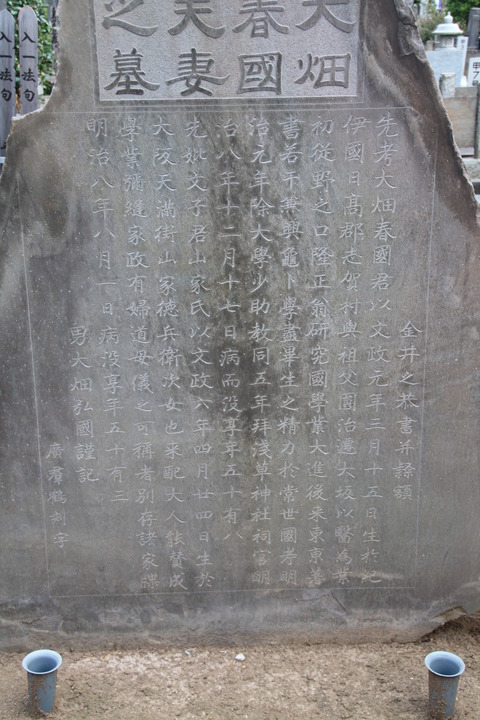 大畑
春國
夫妻
之墓
金井之恭書并篆額
先考大畑春國君以文政元年三月十五日生於紀
伊國日髙郡志賀村與祖父國治遷大坂以醫為業
初從野之口隆正翁研究國學業大進後來東京著
書若干兼興龜卜學盡畢生之精力於常世國考明
治元年除大學少助教同五年拜淺草神社祠官明
治八年十二月十七日病而没享年五十有八
先妣文子君山家氏以文政六年四月廿四日生於
大坂天満街山家徳兵衛次女也来配大人能賛成
學業彌縫家政有婦道母儀之可稱者別存諸家牒
明治八年八月一日病没享年五十有三
男大畑弘國謹記
廣羣鶴刻字
入一法句
入一法句